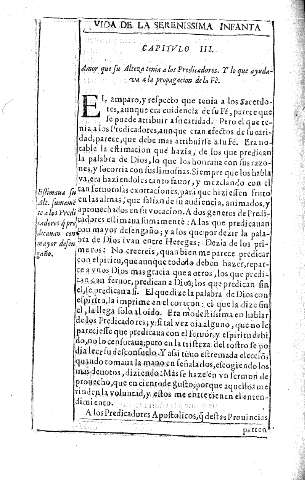 VIDA DE LA SERENISSIMA INFANTA
CAPITVLO III.
Amor que su Alteza tenia a los Predicadores. Y lo que ayuda-
ua a la propagacion de la Fè.
EL amparo, y respecto que tenia a los Sacerdo-
tes, aunque era euidencia de su Fè, parece que
se puede atribuir a su caridad. Pero el que te-
nia a los Predicadores, aunque eran efectos de su cari-
dad, parece, que debe mas atribuirse a la fè. Era no-
table la estimacion que hazia, de los que predican
la palabra de Dios, lo que los honraua con sus razo-
nes, y socorria con sus limosnas. Siempre que los habla
ua, era haziendoles tanto fauor, y mezclando con el
tan feruorosas exortaciones, para que hiziessen fruto
en las almas; que salian de su audiencia, animados, y
aprouechados en su vocacion. A dos generos de Predi-
cadores estimaua sumamente: A los que predicauan
con mayor desengaño; y a los que por dezir la pala-
bra de Dios ivan entre Hereges: Dezia de los pri-
meros: No creereis, quan bien me parece predicar
con espiritu, que aunque todos le deben hazer, repar-
te a vnos Dios mas gracia que a otros, los que predi-
can con feruor, predican a Dios; los que predican sin
el, se predican a si. El que dize la palabra de Dios con
espiritu, la imprime en el coraçon: el que la dize sin
el, la llega solo al oido. Era modestissima en hablar
de los Predicadores; y si tal vez oia alguno, que no le
pareciesse que predicaua con el feruor, y espiritu debi-
do, no lo censuraua; pero en la tristeza del rostro se po-
dia leer su desconsuelo. Y assi tenia estremada eleccion,
quando tomaua la mano en señalarlos, escogiendo los
mas deuotos, diziendo: Mas se haze en vn sermon de
prouecho, que en ciento de gusto; porque aquellos me
rinden la voluntad, y estos me entretienen el enten-
dimiento.
A los Predicadores Apostolicos, q̃ destas Prouincias
Estimaua su
Alt. sumamē
te a los Predi
cadores q̃ pre
dicauan con
mayor desen
gaño.